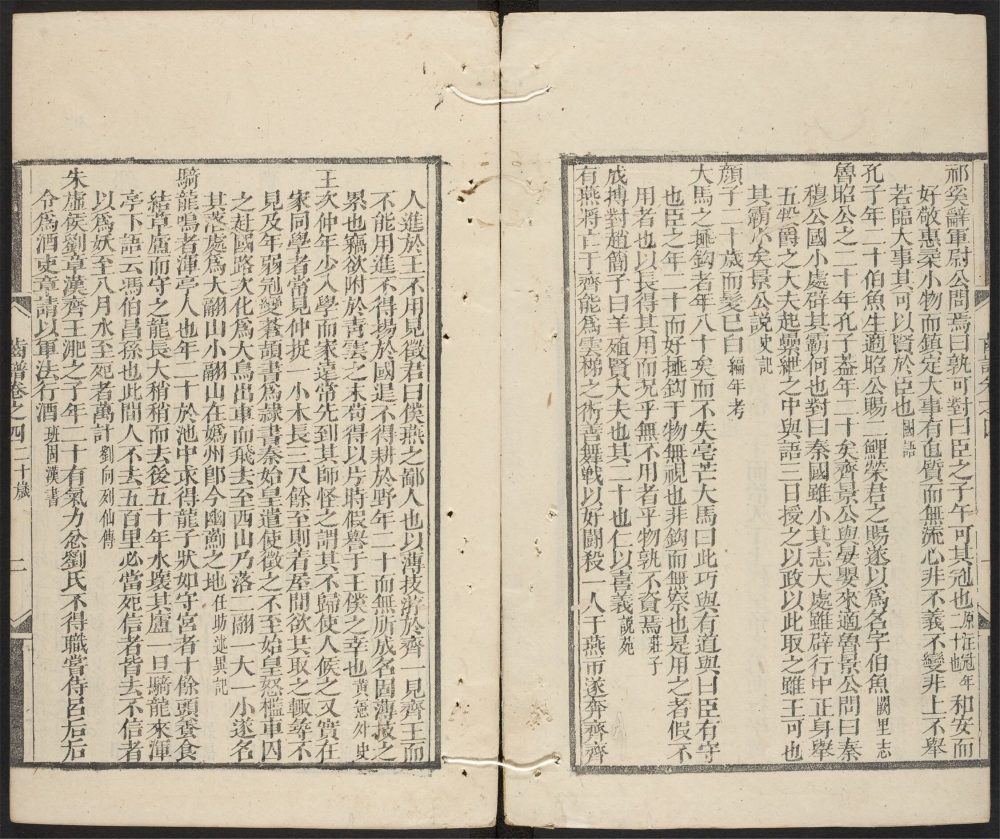 祁奚辭軍尉公問焉曰孰可對曰臣之子午可其冠也原注冠年二十也和安而
好敬惠柔小物而鎮定大事有直質而無流心非不義不變非上不舉
若臨大事其可以賢於臣也國語
孔子年二十伯魚生適昭公賜二鯉榮君之賜遂以為名字伯魚闕里志
魯昭公之二十年孔子蓋年二十矣齊景公與晏嬰來適魯景公問曰秦
穆公國小處辟其霸何也對曰秦國雖小其志大處雖辟行中正身舉
五羖爵之大夫起纍紲之中與語三日授之以政以此取之雖王可也
其霸小矣景公說史記
顏子二十歲而髮已白編年考
大馬之捶鉤者年八十矣而不失毫芒大馬曰此巧與有道與曰臣有守
也臣之年二十而好捶鉤于物無視也非鉤而無察也是用之者假不
用者也以長得其用而況乎無不用者乎物孰不資焉莊子
成摶對趙簡子曰羊殖賢大夫也其二十也仁以喜義說苑
有燕將亡于齊能為雲梯之術善舞戟以好鬪殺一人于燕市遂奔齊齊
人進於王不用見徵君曰僕燕之鄙人也以薄技游於齊一見齊王而
不能用進不得揚於國退不得耕於野年二十而無所成名固薄技之
累也竊欲附於青雲之末苟得以片時假譽于王僕之幸也黃憲外史
王次仲年少入學而家遠常先到其師怪之謂其不歸使人候之又實在
家同學者常見仲捉一小木長三尺餘至則着屋間欲共取之輒尋不
見及年弱冠變蒼頡書為隸書秦始皇遣使徵之不至始皇怒檻車囚
之赴國路次化為大鳥出車而飛去至西山乃落二翮一大一小遂名
其落處為大翮山小翮山在嬀州卽今幽薊之地任昉述異記
騎龍鳴者渾亭人也年二十於池中求得龍子狀如守宮者十餘頭養食
結草廬而守之龍長大稍稍而去後五十年水壞其廬一旦騎龍來渾
亭下語云馮伯昌孫也此間人不去五百里必當死信者皆去不信者
以為妖至八月水至死者萬計劉向列仙傳
朱虛侯劉章漢齊王淝之子年二十有氣力忿劉氏不得職嘗侍呂后后
令為酒吏章請以軍法行酒班固漢書
齒譜卷之四 二十歲
二